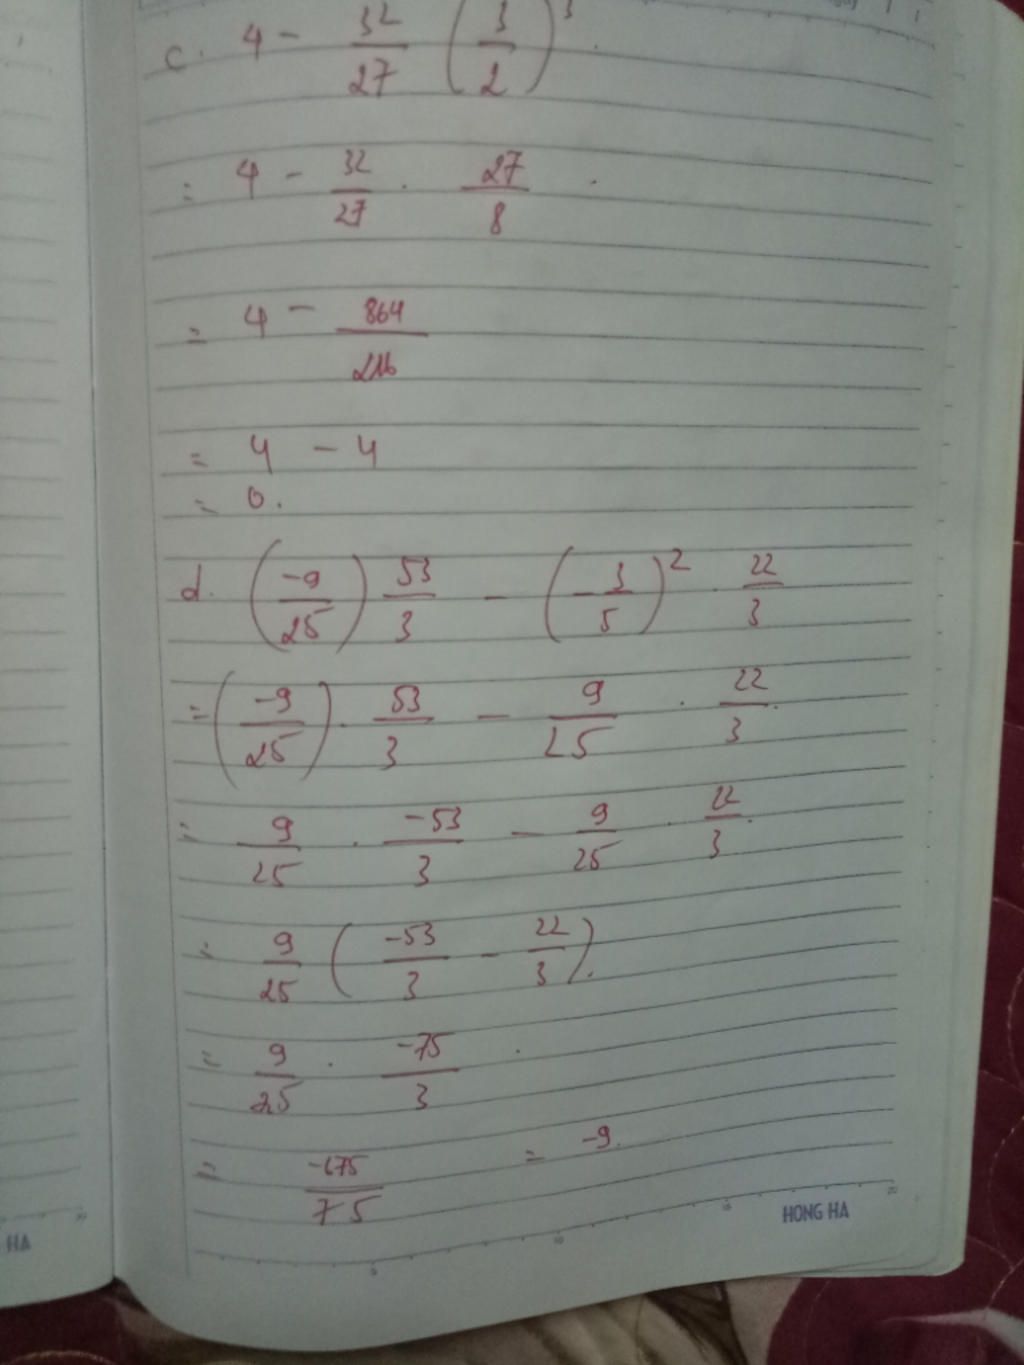 c. 4 - 32/27 (3/2)^3.
= 4 - 32/27 . 27/8 .
= 4 - 864/216
= 4 - 4
= 0.
d. (-9/25) 53/3 - (-3/5)^2 . 22/3
= (-9/25) . 53/3 - 9/25 . 22/3.
= 9/25 . -53/3 - 9/25 . 22/3.
= 9/25 (-53/3 - 22/3).
= 9/25 . -75/3 .
= -675/75 = -9.
5 10 15 20
HONG HA
HA